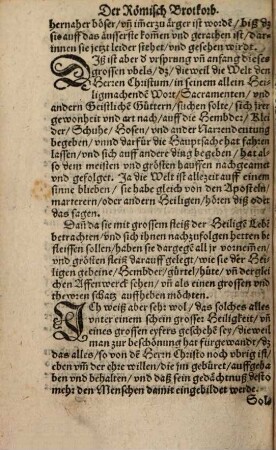 Der Römisch Brotkorb.
hernaher böser/ vn̄ im̄erzu ärger ist wordē/ biß dz
sis auff das äusserste komen vnd gerathen ist/ dar-
innen sie jetzt leider stehet/ vnd gesehen wirdt.
Diß ist aber d vrsprung vn̄ anfang dieses
grossen vbels/ dz/ dieweil die Welt den
Herrn Christum/ in seinem allein Hei-
ligmachendē Wort/ Sacramenten/ vnd
andern Geistlichē Güttern/ suchen solte/ sich jrer
gewonheit vnd art nach/ auff die Hembder/ Klei
der/ Schuhe/ Hosen/ vnd ander Narrendentung
begeben/ vnnd darfür die Hauptsache hat fahren
lassen/ vnd sich auff ander ding begeben/ hat al-
so dem meisten vnd grösten hauffen nachgeamet
vnd gefolget. Ja die Welt ist allezeit auff einem
sinne blieben/ sie habe gleich von den Aposteln/
marterern/ oder andern Heiligen/ hören diß oder
das sagen.
Dan̄ da sie mit grossem fleiß der Heiligē Lebē
betrachten/ vnd sich ihnen nachzufolgen herten be
fleissen sollen/ haben sie dargegē all jr vornemen/
vnd grösten fleiß darauff gelegt/ wie sie der Heili-
gen gebeine/ Hembder/ gürtel/ hüte/ vn̄ der glei-
chen Affenwerck sehen/ vn̄ als einen grossen vnd
thewren schatz auffheben möchten.
Ich weiß aber sehr wol/ das solches alles
vnter einem schein grosser Heiligkeit/ vn̄
eines grossen eyfers geschehē sey/ dieweil
man zur beschönung hat fürgewandt/ dz
das alles/ so von dē Herrn Christo noch vbrig ist/
eben vm̄ der ehre willen/ die jm gebüret/ auffgeha
ben vnd behalten/ vnd daß sein gedächtnuß desto
mehr den Menschen damit eingebildet werde.
Sol-